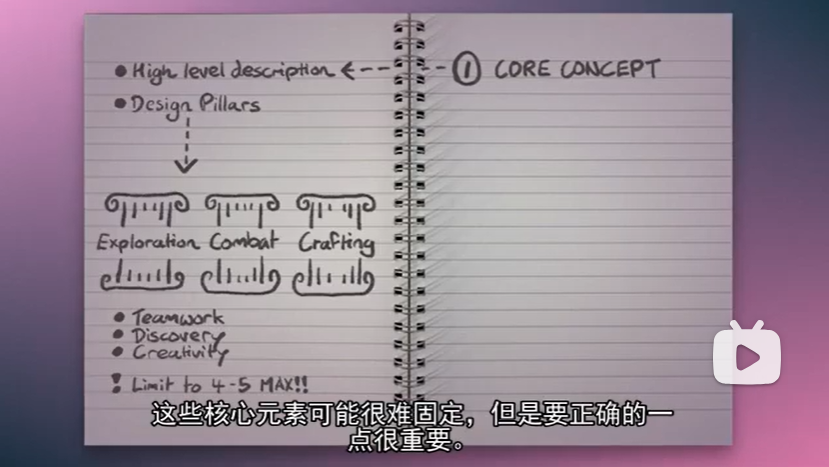 High level description
Design Pillars
Exploration Combat Crafting
Teamwork
Discovery
Creativity
! Limit to 4-5 MAX!!
① CORE CONCEPT
这些核心元素可能很难固定，但是要正确的一
点很重要。